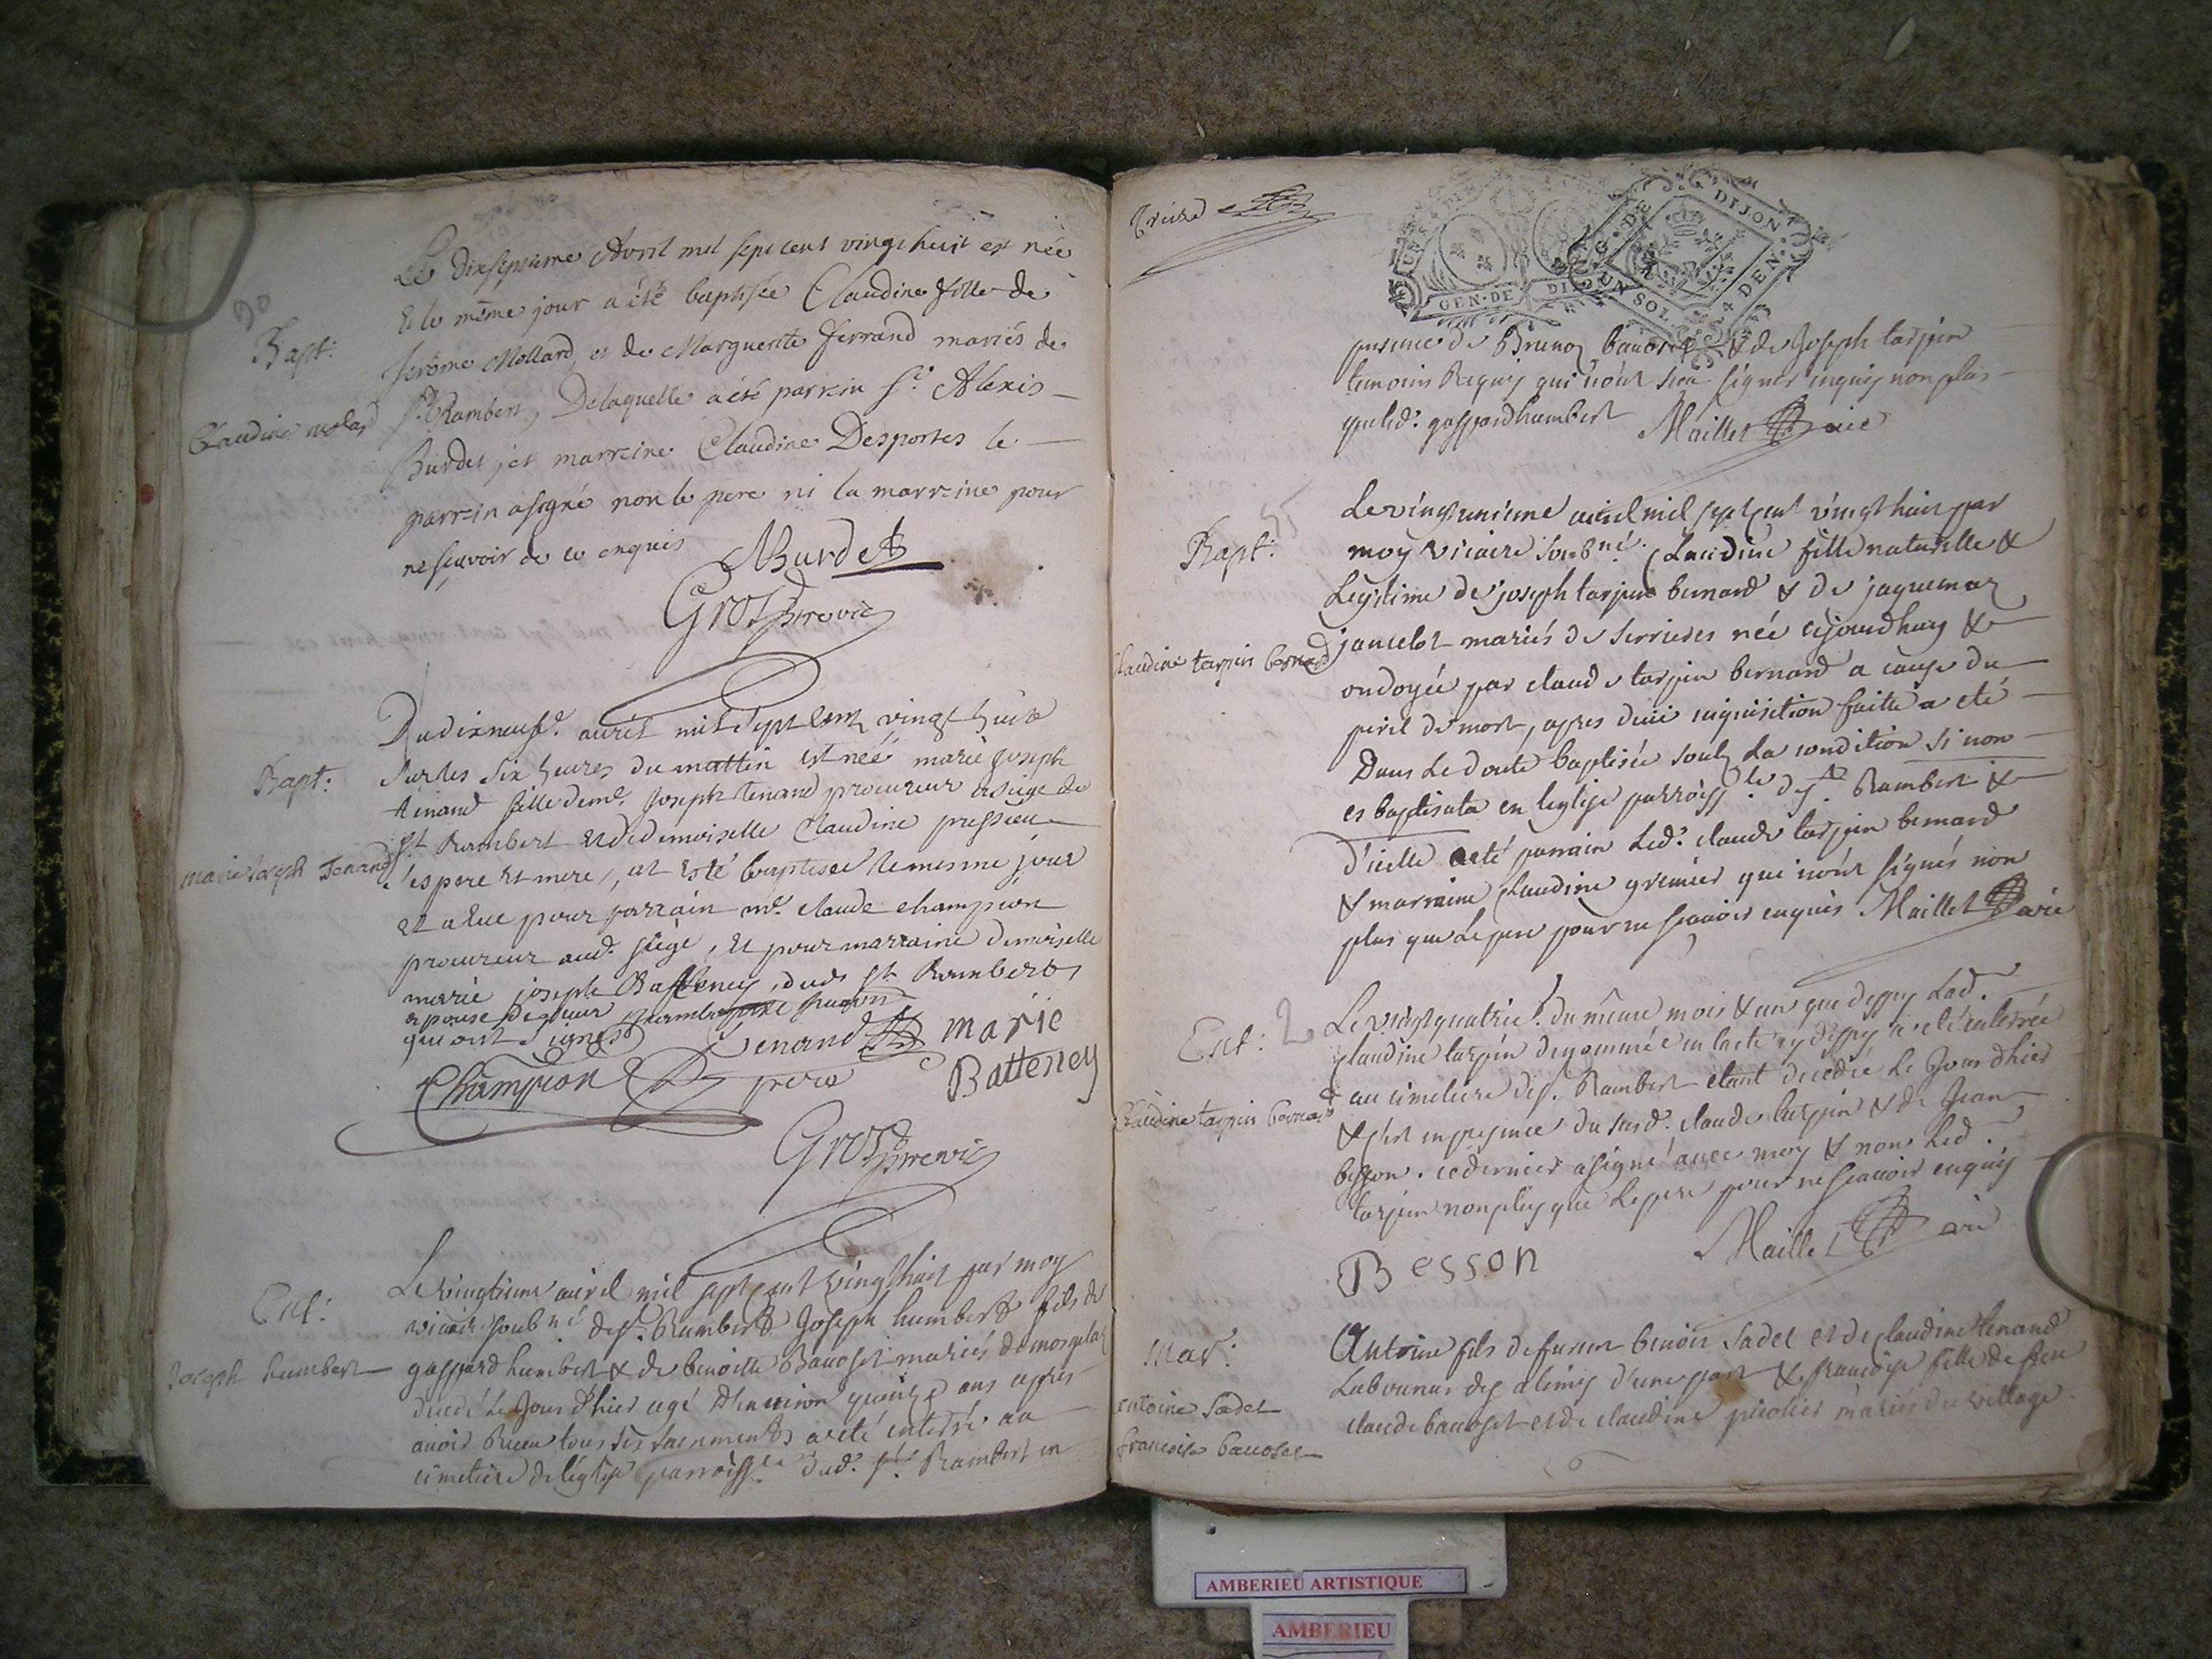 Bapt:
Claudine molard
Le Dixseptieme Avril mil sept cent vingt huit est née
& le même jour a été baptisée Claudine fille de
Jerôme Mollard, et de Marguerite ferrand mariés de
St Rambert, Delaquelle a été parrein Sr. Alexis
Burdet, et marreine Claudine Desportes le
parrein a signé non le pere ni la marreine pour
ne sçavoir de ce enquis
Burdet
Gros
Bapt:
marie Joseph Tenand
Du dixneufe. avril mil sept cent vingt huit
sur les six heures du mattin est néé marie Joseph
tenand fille de me. Joseph tenand procureur au siege de
st Rambert et de demoiselle Claudine pressieu
ses pere et mere, et esté baptisée le mesme jour
et a eue pour parrain me. claude champion
procureur aud. siège, et pour marraine demoiselle
marie joseph Batteney, dud. st Rambert
epouse de sieur
qui ont signes
Tenand
pere
marie
Batteney
Champion
Gros
Ent:
Joseph humbert
Le vingtieme avril mil sept cent vingt huit par moy
vicaire soubné. de St. Rambert Joseph humbert fils de
gaspard humbert & de benoitte Bavoset mariés de morgelas
decedé Le Jour d'hier agé d'environ quinze ans apres
avoir Receu tous ses sacrements a eté enterré au
cimetiere de l'eglise parroissle dud. St. Rambert en
Treize
GEN. DE DIJON
UN SOL 4 DEN.
presence de Brunoz bavoset & de Joseph tarpin
temoins Requis qui n'ont sceu signer enquis non plus
que led. gaspard humbert Maillet vic
Bapt:
Claudine tarpin bernard
Le vingtunieme avril mil sept cent vingt huit par
moy vicaire soubné. Claudine fille naturelle &
Legitime de joseph tarpin bernard & de jaquemaz
jancelot mariés de serrieres née cejourdhuy &
ondoyée par claude tarpin bernard a cause du
peril de mort, apres deüe inquisition faitte a eté
Dans Le doute baptisée soubz La condition si non
es baptisata en leglise parroissle. de St. Rambert &
d'icelle a eté parrain Led. claude tarpin bernard
& marraine Claudine grenier qui n'ont signés non
plus que Le pere pour ne scavoir enquis Maillet vic
Ent: 2
Claudine tarpin bernard
Le vingtquatrie. du même mois & an que dessus Lad.
Claudine tarpin denommée en lacte cy dessus a eté enterrée
au cimetiere de St. Rambert etant decedée Le Jour d'hier
& c'est en presence du susd. claude tarpin & de Jean
besson. ce dernier a signé avec moy & non Led.
tarpin non plus que Le pere pour ne scavoir enquis
Maillet vic
Besson
Mar:
antoine Sadet
francoise bavoset
Antoine fils de furent benoit Sadet et de Claudine tenand
Laboureur des alimes d'une part & francoise fille de feu
claude bavoset et de claudine picolier mariés du village
AMBERIEU ARTISTIQUE
AMBERIEU